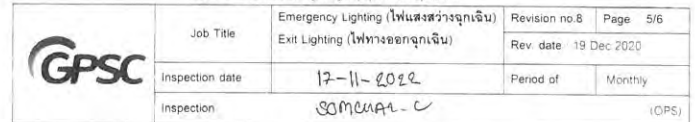 GPSC
Job Title
Emergency Lighting (ไฟแสงสว่างฉุกเฉิน)
Exit Lighting (ไฟทางออกฉุกเฉิน)
Revision no.8
Page 5/6
Rev. date 19 Dec 2020
Inspection date
17-11-2022
Period of
Monthly
Inspection
SOMCHAI-C
(OPS)